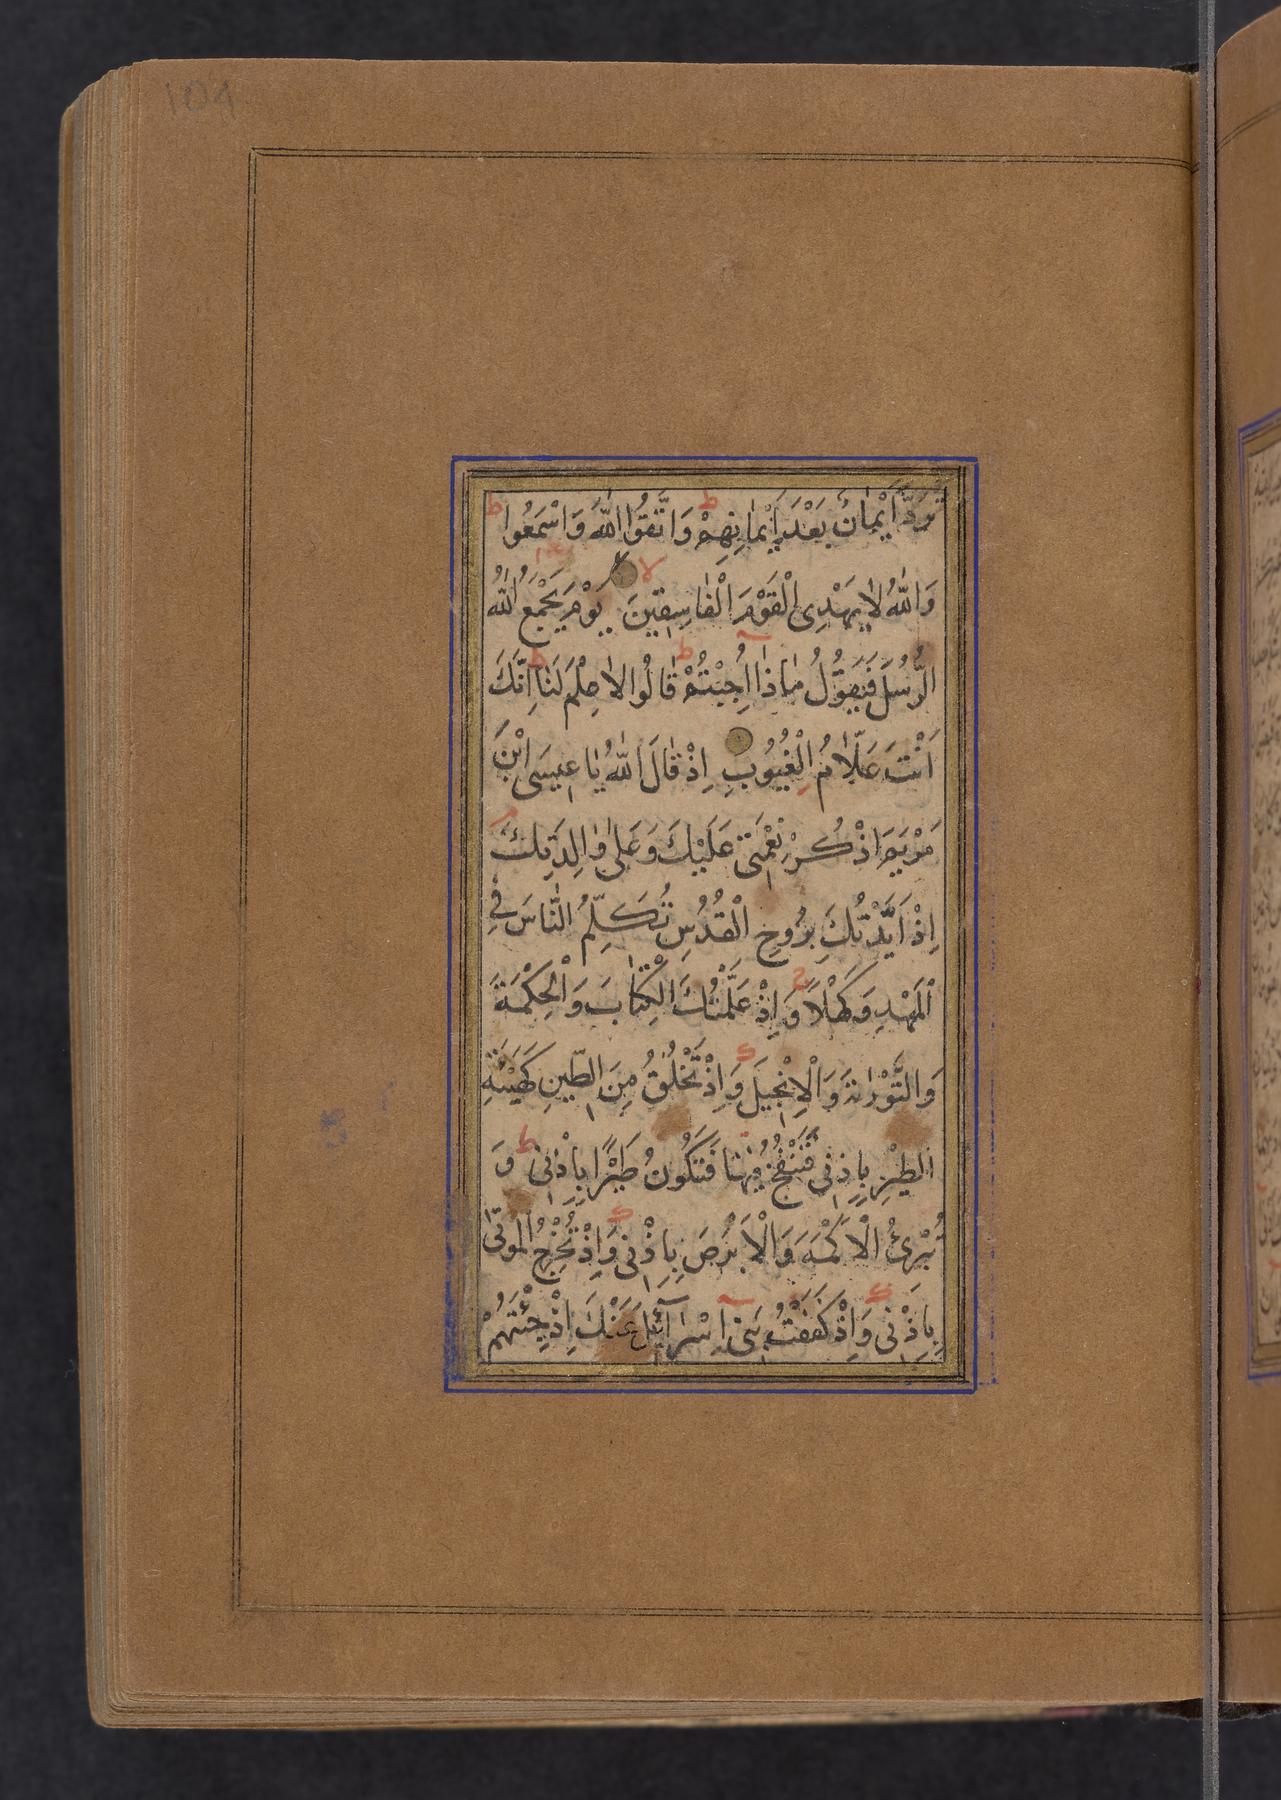 104
تُرَدَّ اَيْمٰانٌ بَعْدَ اَيْمٰانِهِمْ وَاتَّقُوا اللّٰهَ وَاسْمَعُوا
وَاللّٰهُ لٰا يَهْدِى الْقَوْمَ الْفٰاسِقٖينَ يَوْمَ يَجْمَعُ اللّٰهُ
الرُّسُلَ فَيَقُولُ مٰاذٰا اُجِبْتُمْ قٰالُوا لٰا عِلْمَ لَنٰا اِنَّكَ
اَنْتَ عَلّٰامُ الْغُيُوبِ اِذْ قٰالَ اللّٰهُ يٰا عٖيسَى ابْنَ
مَرْيَمَ اذْكُرْ نِعْمَتٖى عَلَيْكَ وَعَلٰى وٰالِدَتِكَ
اِذْ اَيَّدْتُكَ بِرُوحِ الْقُدُسِ تُكَلِّمُ النّٰاسَ فِى
الْمَهْدِ وَكَهْلًا وَاِذْ عَلَّمْتُكَ الْكِتٰابَ وَالْحِكْمَةَ
وَالتَّوْرٰاةَ وَالْاِنْجٖيلَ وَاِذْ تَخْلُقُ مِنَ الطّٖينِ كَهَيْئَةِ
الطَّيْرِ بِاِذْنٖى فَتَنْفُخُ فٖيهٰا فَتَكُونُ طَيْرًا بِاِذْنٖى وَ
تُبْرِئُ الْاَكْمَهَ وَالْاَبْرَصَ بِاِذْنٖى وَاِذْ تُخْرِجُ الْمَوْتٰى
بِاِذْنٖى وَاِذْ كَفَفْتُ بَنٖى اِسْرٰآئٖيلَ عَنْكَ اِذْ جِئْتَهُمْ